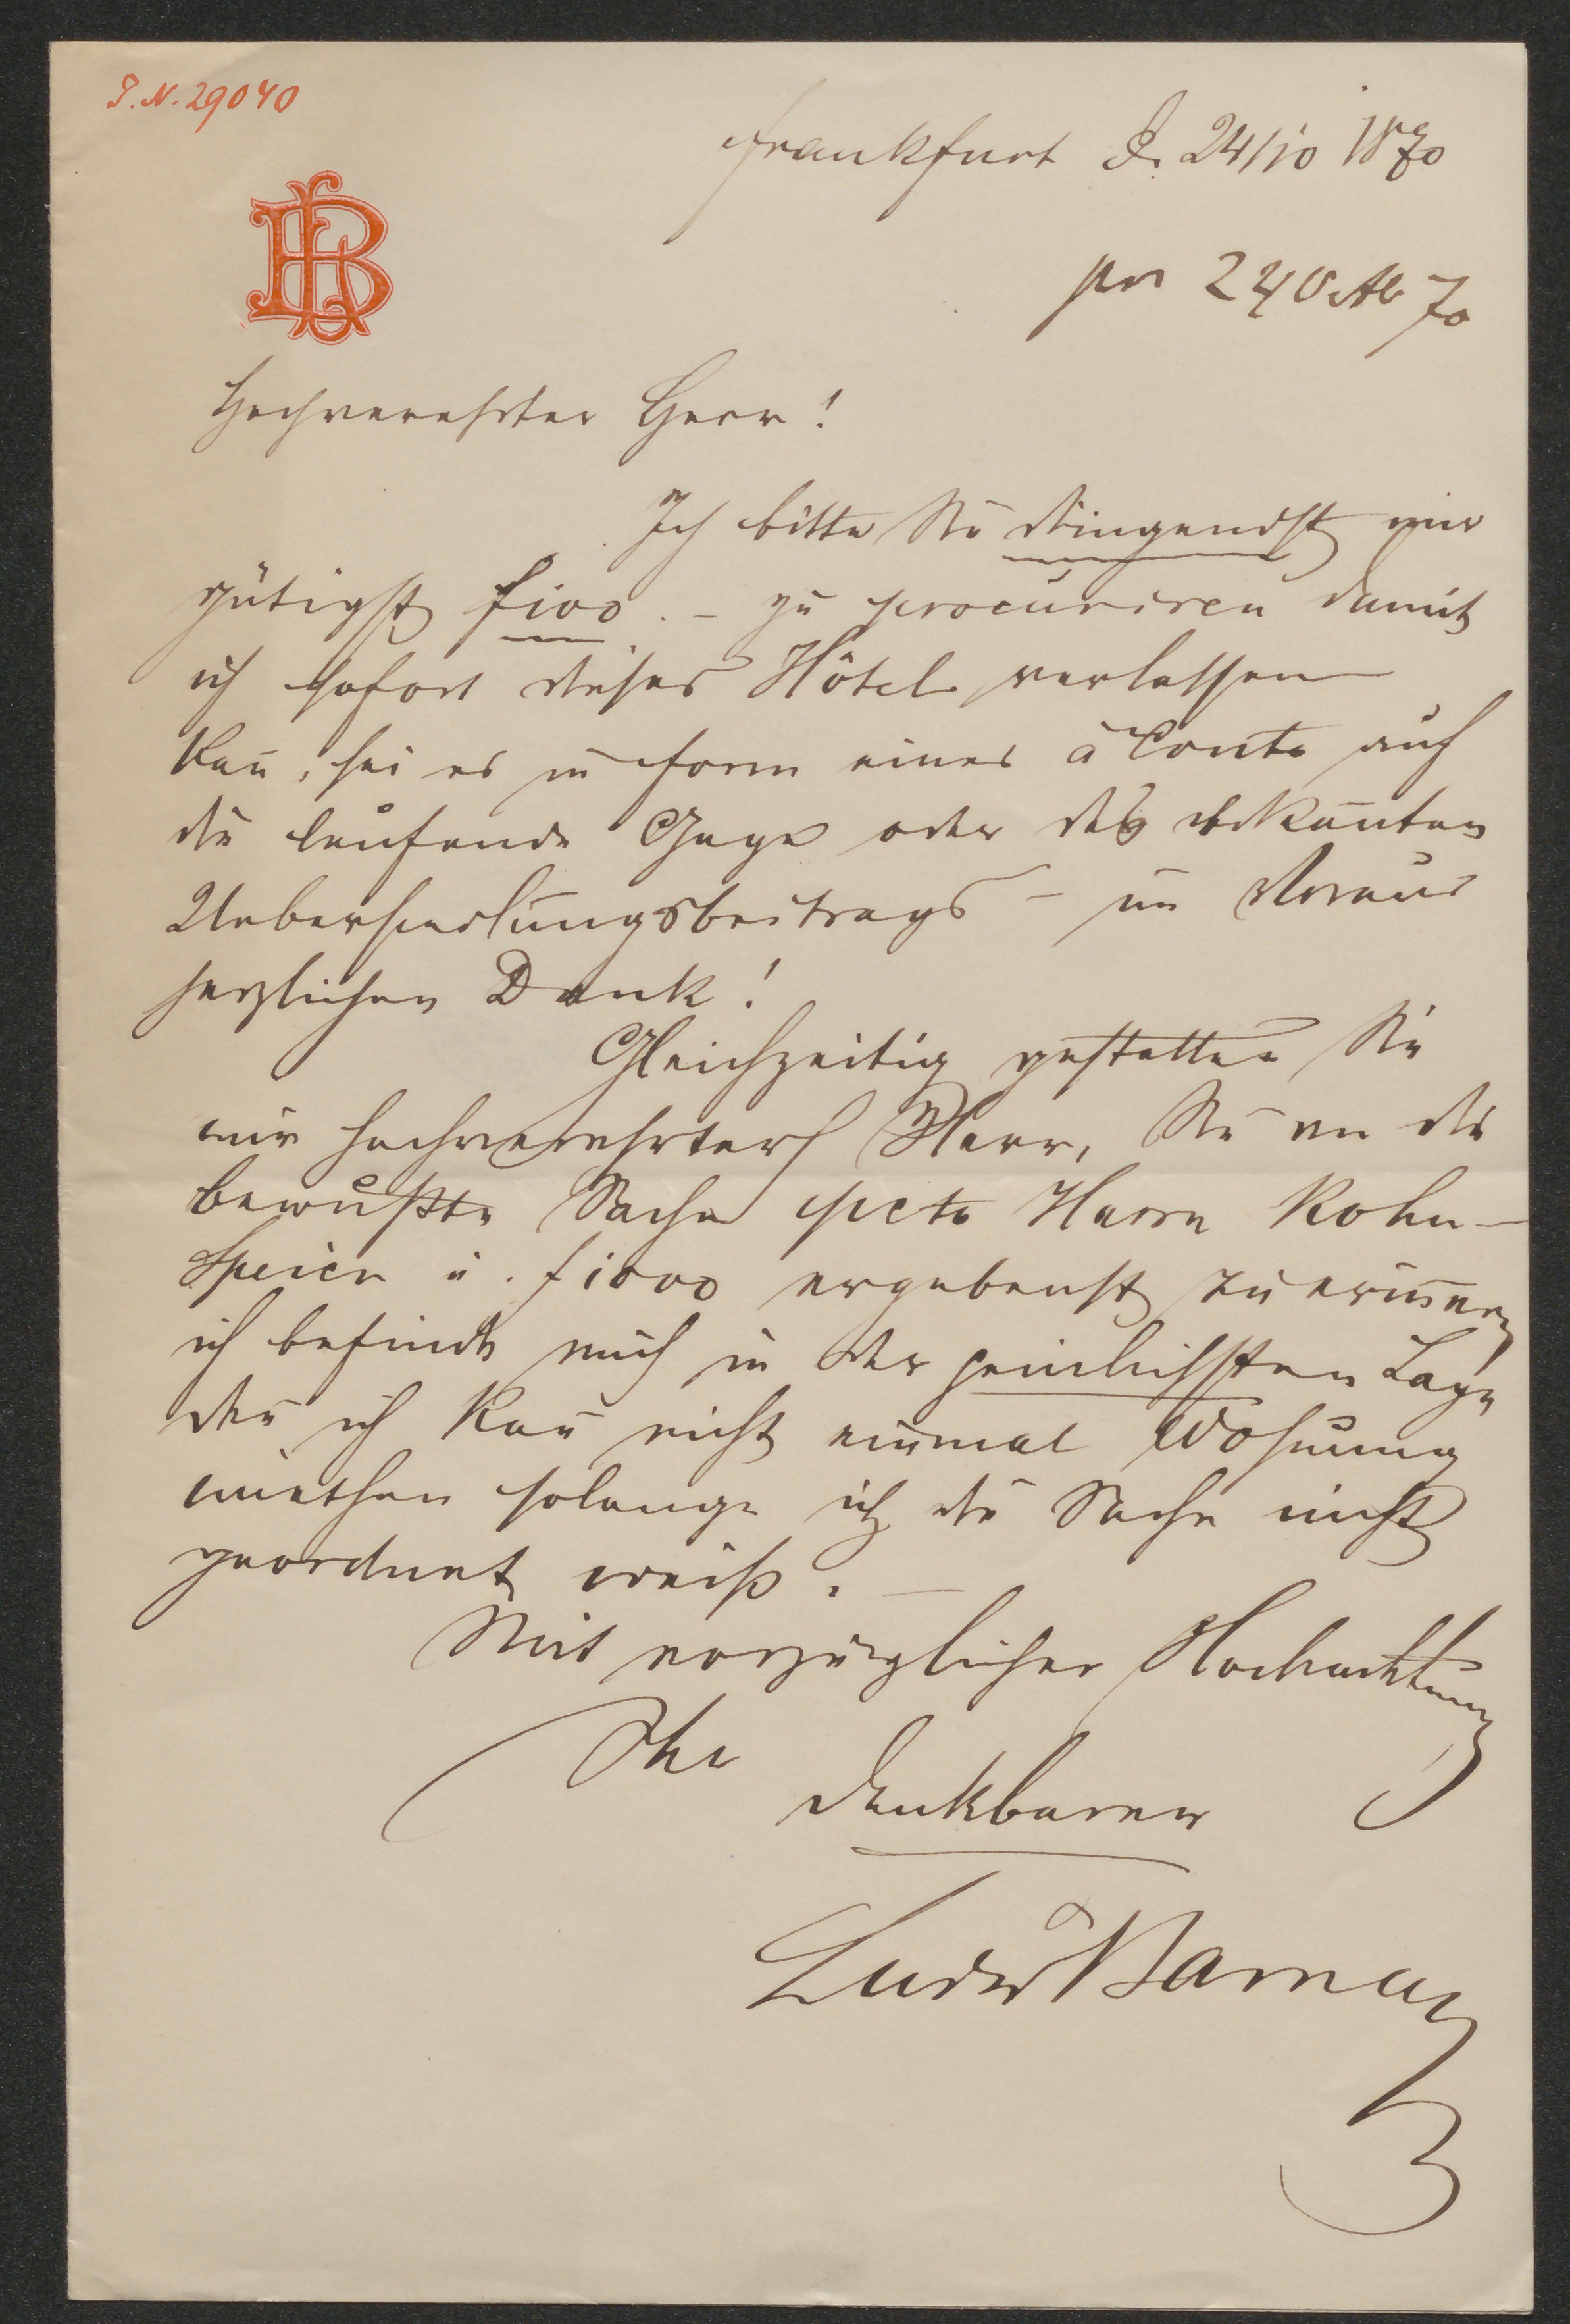 I. N. 29040
Frankfurt d. 24/10 1870
LB
pr 24 Octb 70
Hochverehrter Herr!
Ich bitte Sie dringendst mir
gütigst f 100.– zu procuriren damit
ich sofort dieses Hôtel verlassen
kan̄, sei es in Form eines à Conto auf
die laufende Gage oder des bekan̄ten
Uebersiedlungsbeitrags – im Voraus
herzlichen Dank!
Gleichzeitig gestatten Sie
mir hochverehrter Herr, Sie an die
bewußte Sache pcto Herrn Kohn-
Speier u. f 1000 ergebenst zu erin̄ern
ich befinde mich in der peinlichsten Lage
den̄ ich kan̄ nicht einmal Wohnung
miethen solange ich die Sache nicht
geordnet weiß. –
Mit vorzüglicher Hochachtung
Ihr
dankbarer
Ludw Barnay